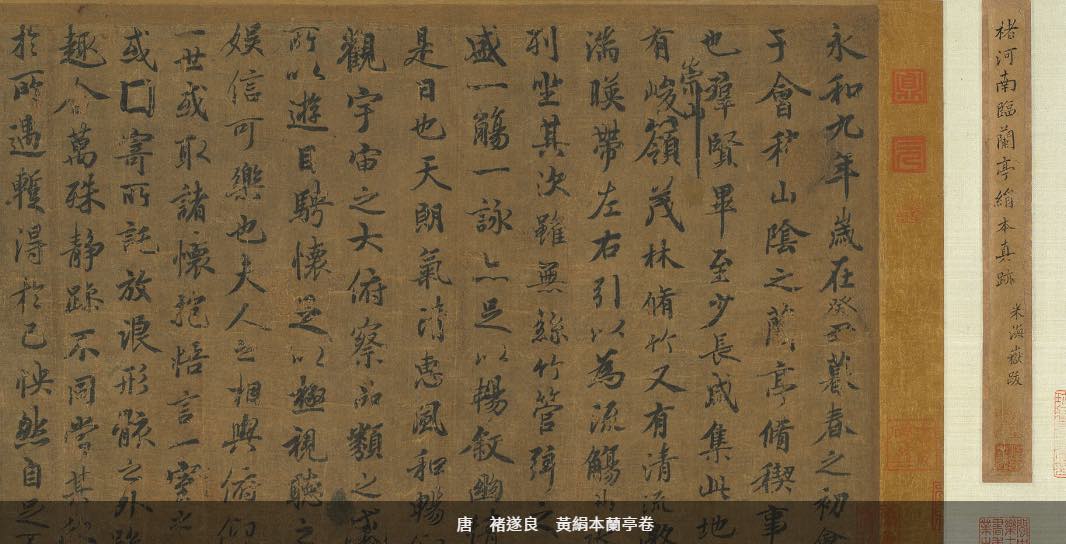 褚河南臨蘭亭絹本真跡
米海嶽跋
永和九年歲在癸丑暮春之初會
于會稽山陰之蘭亭脩稧事
也羣賢畢至少長咸集此地
崇山
有峻嶺茂林脩竹又有清流激
湍暎帶左右引以為流觴曲水
列坐其次雖無絲竹管弦之
盛一觴一詠亦足以暢敘幽情
是日也天朗氣清惠風和暢仰
觀宇宙之大俯察品類之盛
所以遊目騁懷足以極視聽之
娛信可樂也夫人之相與俯仰
一世或取諸懷抱悟言一室之
或囗寄所託放浪形骸之外雖
趣舍萬殊靜躁不同當其欣
於所遇暫得於己怏然自足不
唐　褚遂良　黃絹本蘭亭卷